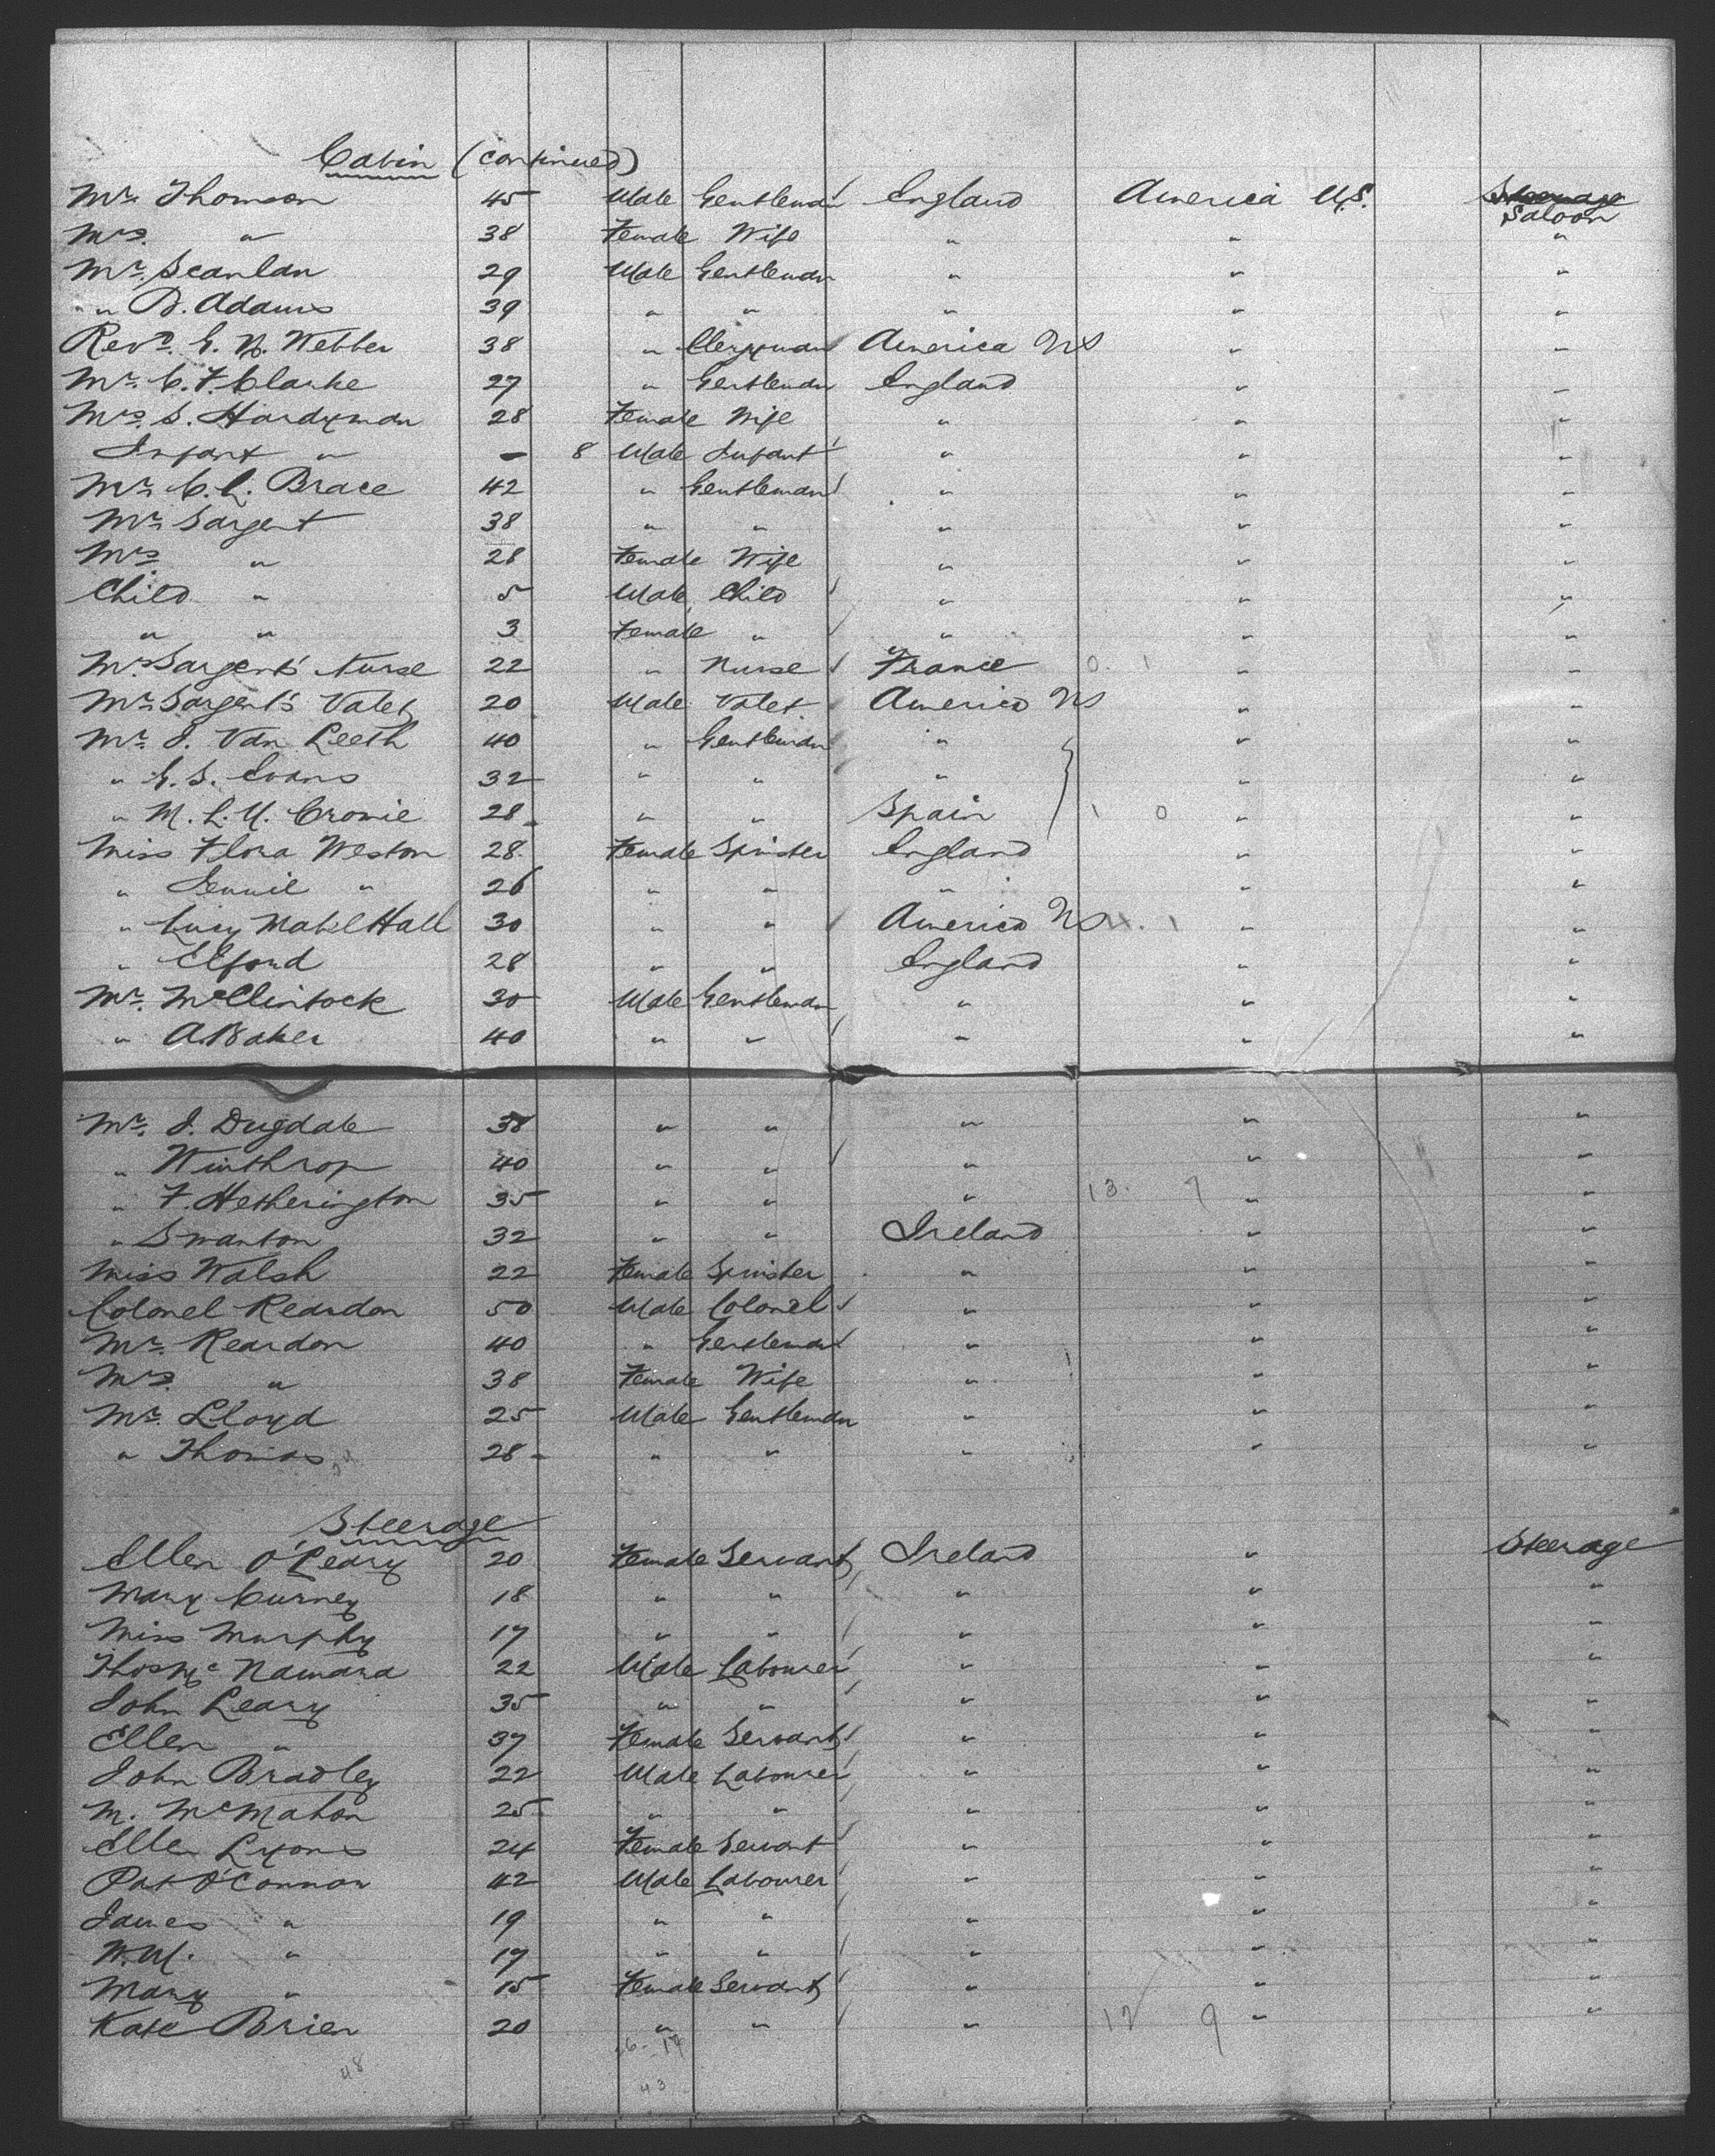 Cabin (continued)
Mr. Thomson 45 Male Gentleman England America U.S. Steerage
Saloon
Mrs. " 38 Female Wife " " "
Mr. Scanlan 29 Male Gentleman " " "
" B. Adams 39 " " " " "
Revd. G. N. Webber 38 " Clergyman America US " "
Mr. C. F. Clarke 27 " Gentleman England " "
Mrs. S. Hardyman 28 Female Wife " " "
Infant " - 8 Male Infant " " "
Mr. C. L. Brace 42 " Gentleman " " "
Mr. Sargent 38 " " " " "
Mrs. " 28 Female Wife " " "
Child " 5 Male Child " " "
" " 3 Female " " " "
Mrs Sargent's Nurse 22 " Nurse France 0 1 " "
Mr. Sargent's Valet 20 Male Valet America US " "
Mr. J. Van Leeth 40 " Gentleman " " "
" G. S. Evans 32 " " " " "
" M. L. U. Cronie 28 " " Spain 1 0 " "
Miss Flora Weston 28 Female Spinster England " "
" Jennie " 26 " " " " "
" Lucy Mabel Hall 30 " " America US 4. 1 " "
" Elford 28 " " England " "
Mr. McClintock 30 Male Gentleman " " "
" A. Baker 40 " " " " "
Mr. J. Dugdale 38 " " " " "
" Winthrop 40 " " " " "
" F. Hetherington 35 " " " 13. 7 " "
" Swanton 32 " " Ireland " "
Miss Walsh 22 Female Spinster " " "
Colonel Reardon 50 Male Colonel " " "
Mr. Reardon 40 " Gentleman " " "
Mrs. " 38 Female Wife " " "
Mr. Lloyd 25 Male Gentleman " " "
" Thomas 28 " " " " "
Steerage
Ellen O'Leary 20 Female Servant Ireland " Steerage
Mary Curney 18 " " " " "
Miss Murphy 17 " " " " "
Thos Mc Namara 22 Male Labourer " " "
John Leary 35 " " " " "
Ellen " 37 Female Servant " " "
John Bradley 22 Male Labourer " " "
M. McMahon 25 " " " " "
Ellen Lyons 24 Female Servant " " "
Pat O'Connor 42 Male Labourer " " "
James " 19 " " " " "
W.M. " 17 " " " " "
Mary " 15 Female Servant " " "
Kate Brien 20 " " " 17 9 " "
48 43